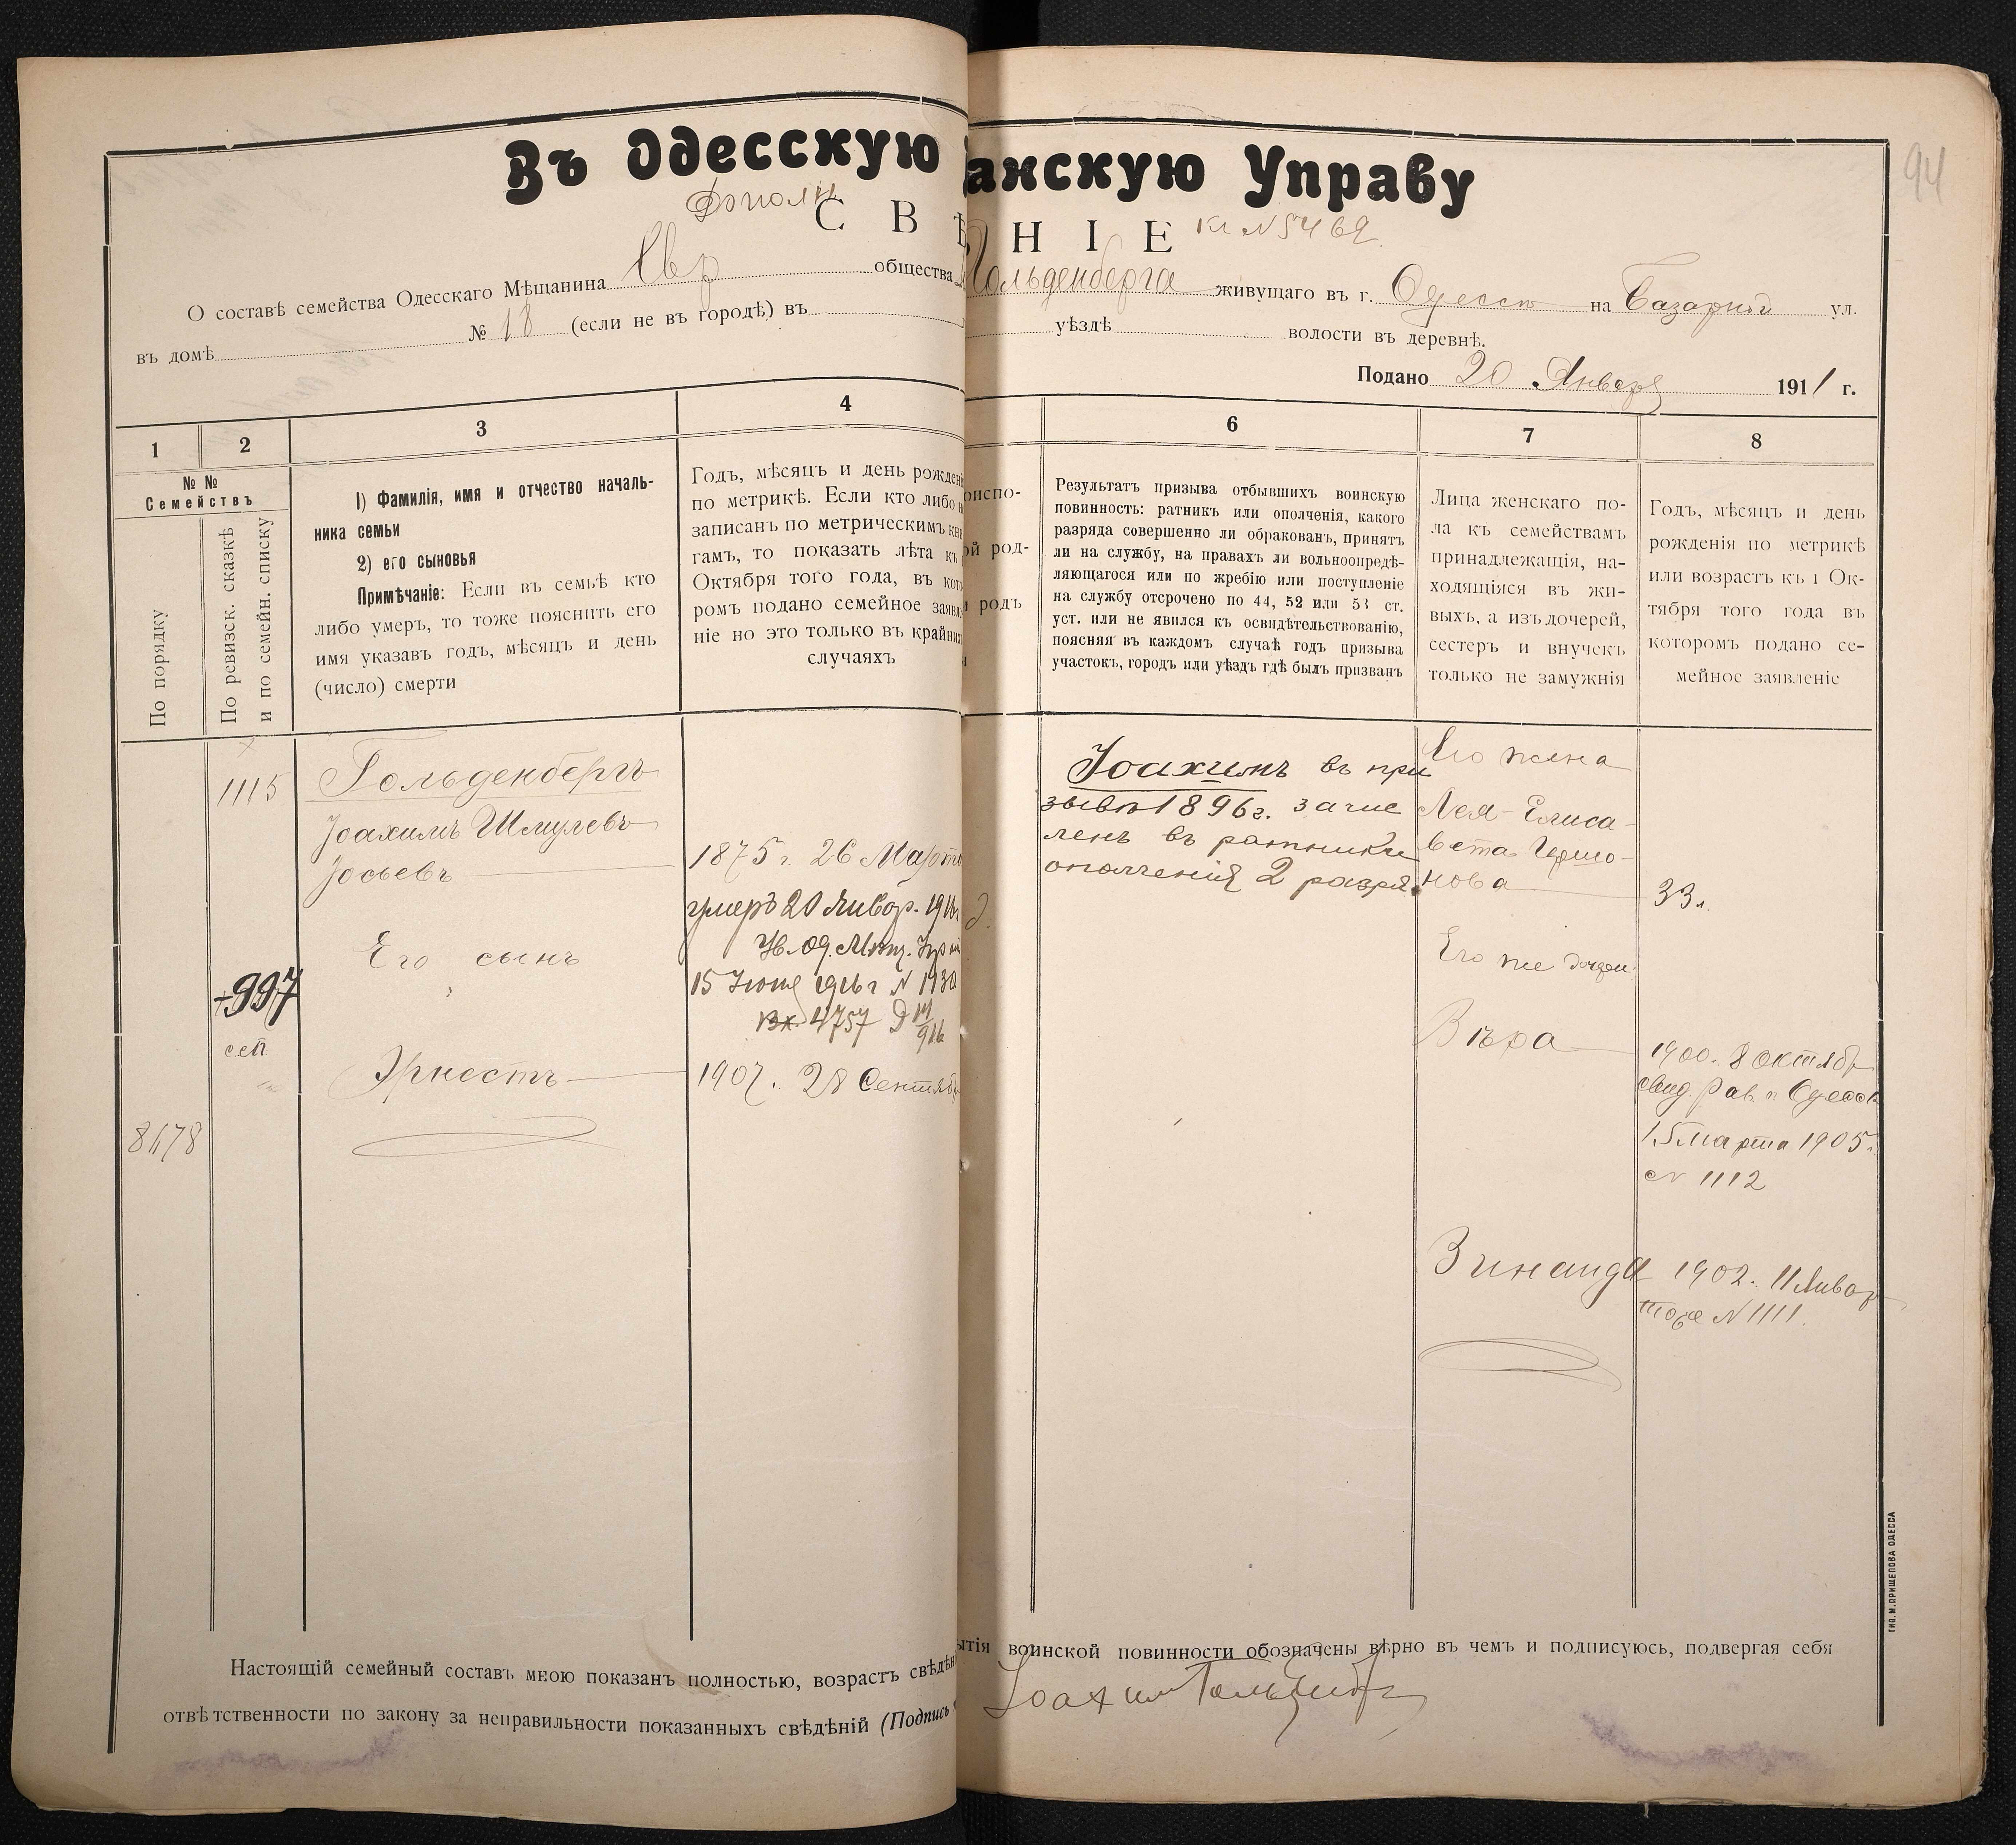 94
Въ Одесскую анскую Управу
Дополн
С В Ѣ Н І Е кл № 5469.
О составѣ семейства Одесскаго Мѣщанина Евр общества Гольденберга живущаго въ г. Одессѣ на Базарной ул.
въ домѣ № 18 (если не въ городѣ) въ уѣздѣ волости въ деревнѣ.
Подано 20 Января 1911 г.
1 2 3 4 6 7 8
№ №
Семействъ
По порядку
По ревизск. сказкѣ
и по семейн. списку
1) Фамилія, имя и отчество началь-
ника семьи
2) его сыновья
Примѣчаніе: Если въ семьѣ кто
либо умеръ, то тоже пояснить его
имя указавъ годъ, мѣсяцъ и день
(число) смерти
Годъ, мѣсяцъ и день рожден
по метрикѣ. Если кто либо н
записанъ по метрическимъ кни
гамъ, то показать лѣта къ
Октября того года, въ кото
ромъ подано семейное заявле
ніе но это только въ крайних
случаяхъ
риспо-
ой род-
родъ
Результатъ призыва отбывшихъ воинскую
повинность: ратникъ или ополченія, какого
разряда совершенно ли обракованъ, принятъ
ли на службу, на правахъ ли вольноопредѣ-
ляющагося или по жребію или поступленіе
на службу отсрочено по 44, 52 или 53 ст.
уст. или не явился къ освидѣтельствованію,
поясняя въ каждомъ случаѣ годъ призыва
участокъ, городъ или уѣздъ гдѣ былъ призванъ
Лица женскаго по-
ла къ семействамъ
принадлежащія, на-
ходящіяся въ жи-
выхъ, а изъ дочерей,
сестеръ и внучекъ
только не замужнія
Годъ, мѣсяцъ и день
рожденія по метрикѣ
или возрастъ къ 1 Ок-
тября того года въ
которомъ подано се-
мейное заявленіе
1115
+997
сем
8478
Гольденбергъ
Іоахимъ Шмулевъ
Іосьевъ
Его сынъ
Эрнестъ
1875 г. 26 Марта
умеръ 20 Январ. 1916
Ув. Од. Мѣщ. Упр
15 Іюня 1916 г № 1930
Вх. 4757
1907. 28 Сентяб
Іоахимъ въ при
зывѣ 1896 г. зачис
ленъ въ ратники
ополченія 2 разряд.
Его жена
Лея-Елиса-
вета Гершо-
нова
33 л.
Его же дочери
Вѣра
1900. 8 Октябр
свид. Рав. г. Одессы
15 марта 1905 г.
№ 1112
Зинаида 1902. 11 Январ
тоже № 1111.
Настоящій семейный составъ мною показанъ полностью, возрастъ свѣдѣн ытія воинской повинности обозначены вѣрно въ чемъ и подписуюсь, подвергая себя
отвѣтственности по закону за неправильности показанныхъ свѣдѣній (Подпись Іоахим Гольденберг
ТИП. М. ПРИЩЕПОВА ОДЕССА